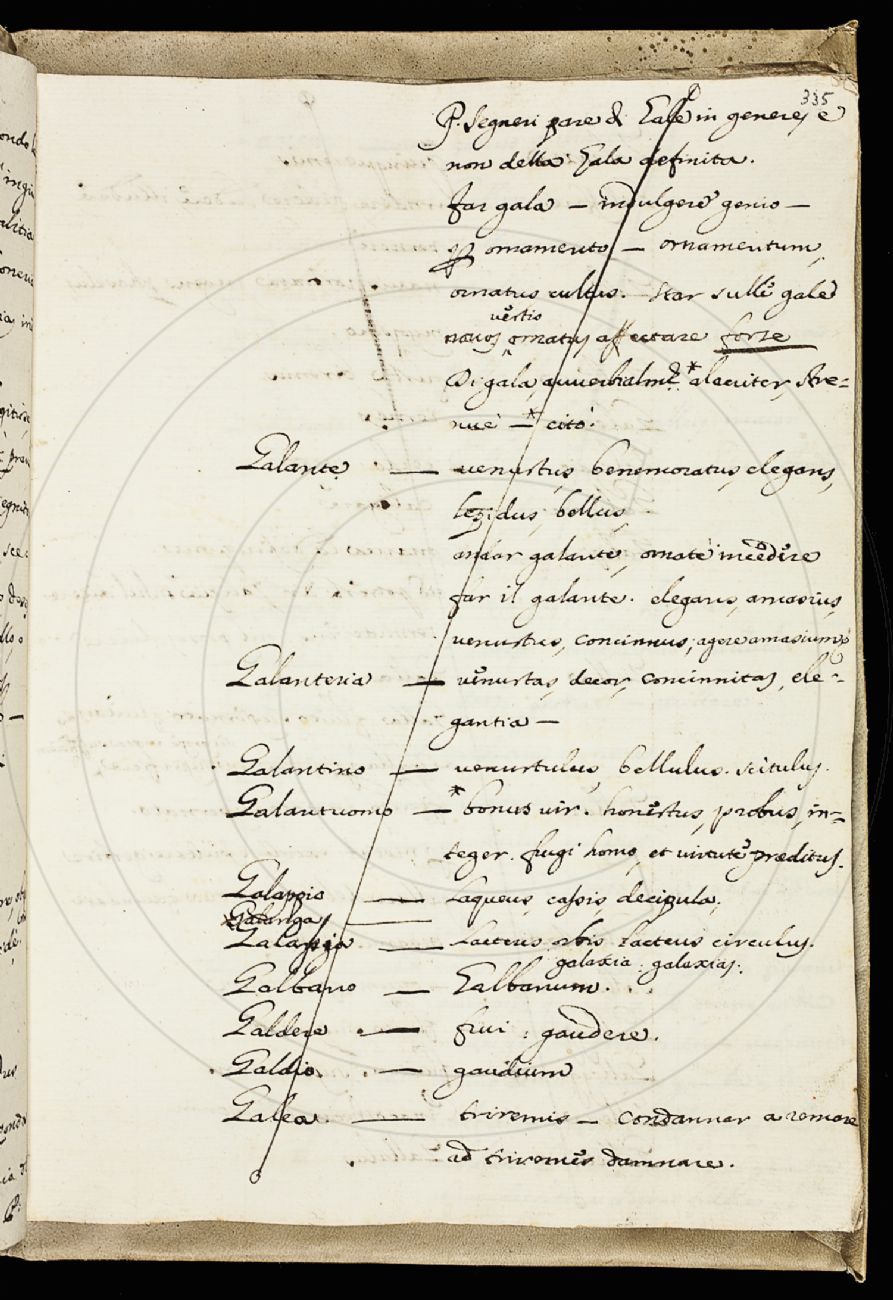 335
P. Segneri pare di Gale in genere, e
non della Gala definita.
far gala — indulgere genio —
p ornamento — ornamentum,
ornatus cultus. star sulle gale
vestio
novos ornatus affectare forse
Di gala, avverbialmte. * alacriter, stre=
nuè — * citò.
Galante — venustus, benemoratus, elegans,
lepidus, bellus,
andar galante, ornatè incedere
far il galante. elegans, amasius,
venustus, concinnus, agere amasium
Galanteria — venustas, decor, concinnitas, ele=
gantia —
Galantino — venustulus, bellulus. scitulus.
Galantuomo — * bonus vir. honestus, probus, in=
teger. frugi homo, et virtute præditus.
Galappio — Laqueus, cassis, decipula.
* Galanga —
Galassia — Lacteus orbis, lacteus circulus.
galaxia: galaxias.
Galbano — Galbanum.
Galdere — frui: gaudere.
Galdio — gaudium
Galea — triremis — condannar a remare
ad triremes damnare.